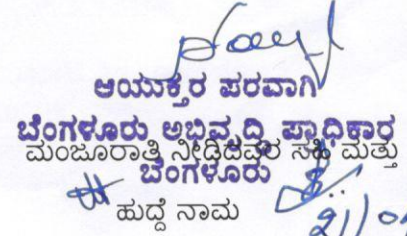 ಆಯುಕ್ತರ ಪರವಾಗಿ
ಬೆಂಗಳೂರು ಅಭಿವೃದ್ಧಿ ಪ್ರಾಧಿಕಾರ
ಮಂಜೂರಾತಿ ನೀಡಿದವರ ಸಹಿ ಮತ್ತು
ಬೆಂಗಳೂರು
ಹುದ್ದೆ ನಾಮ